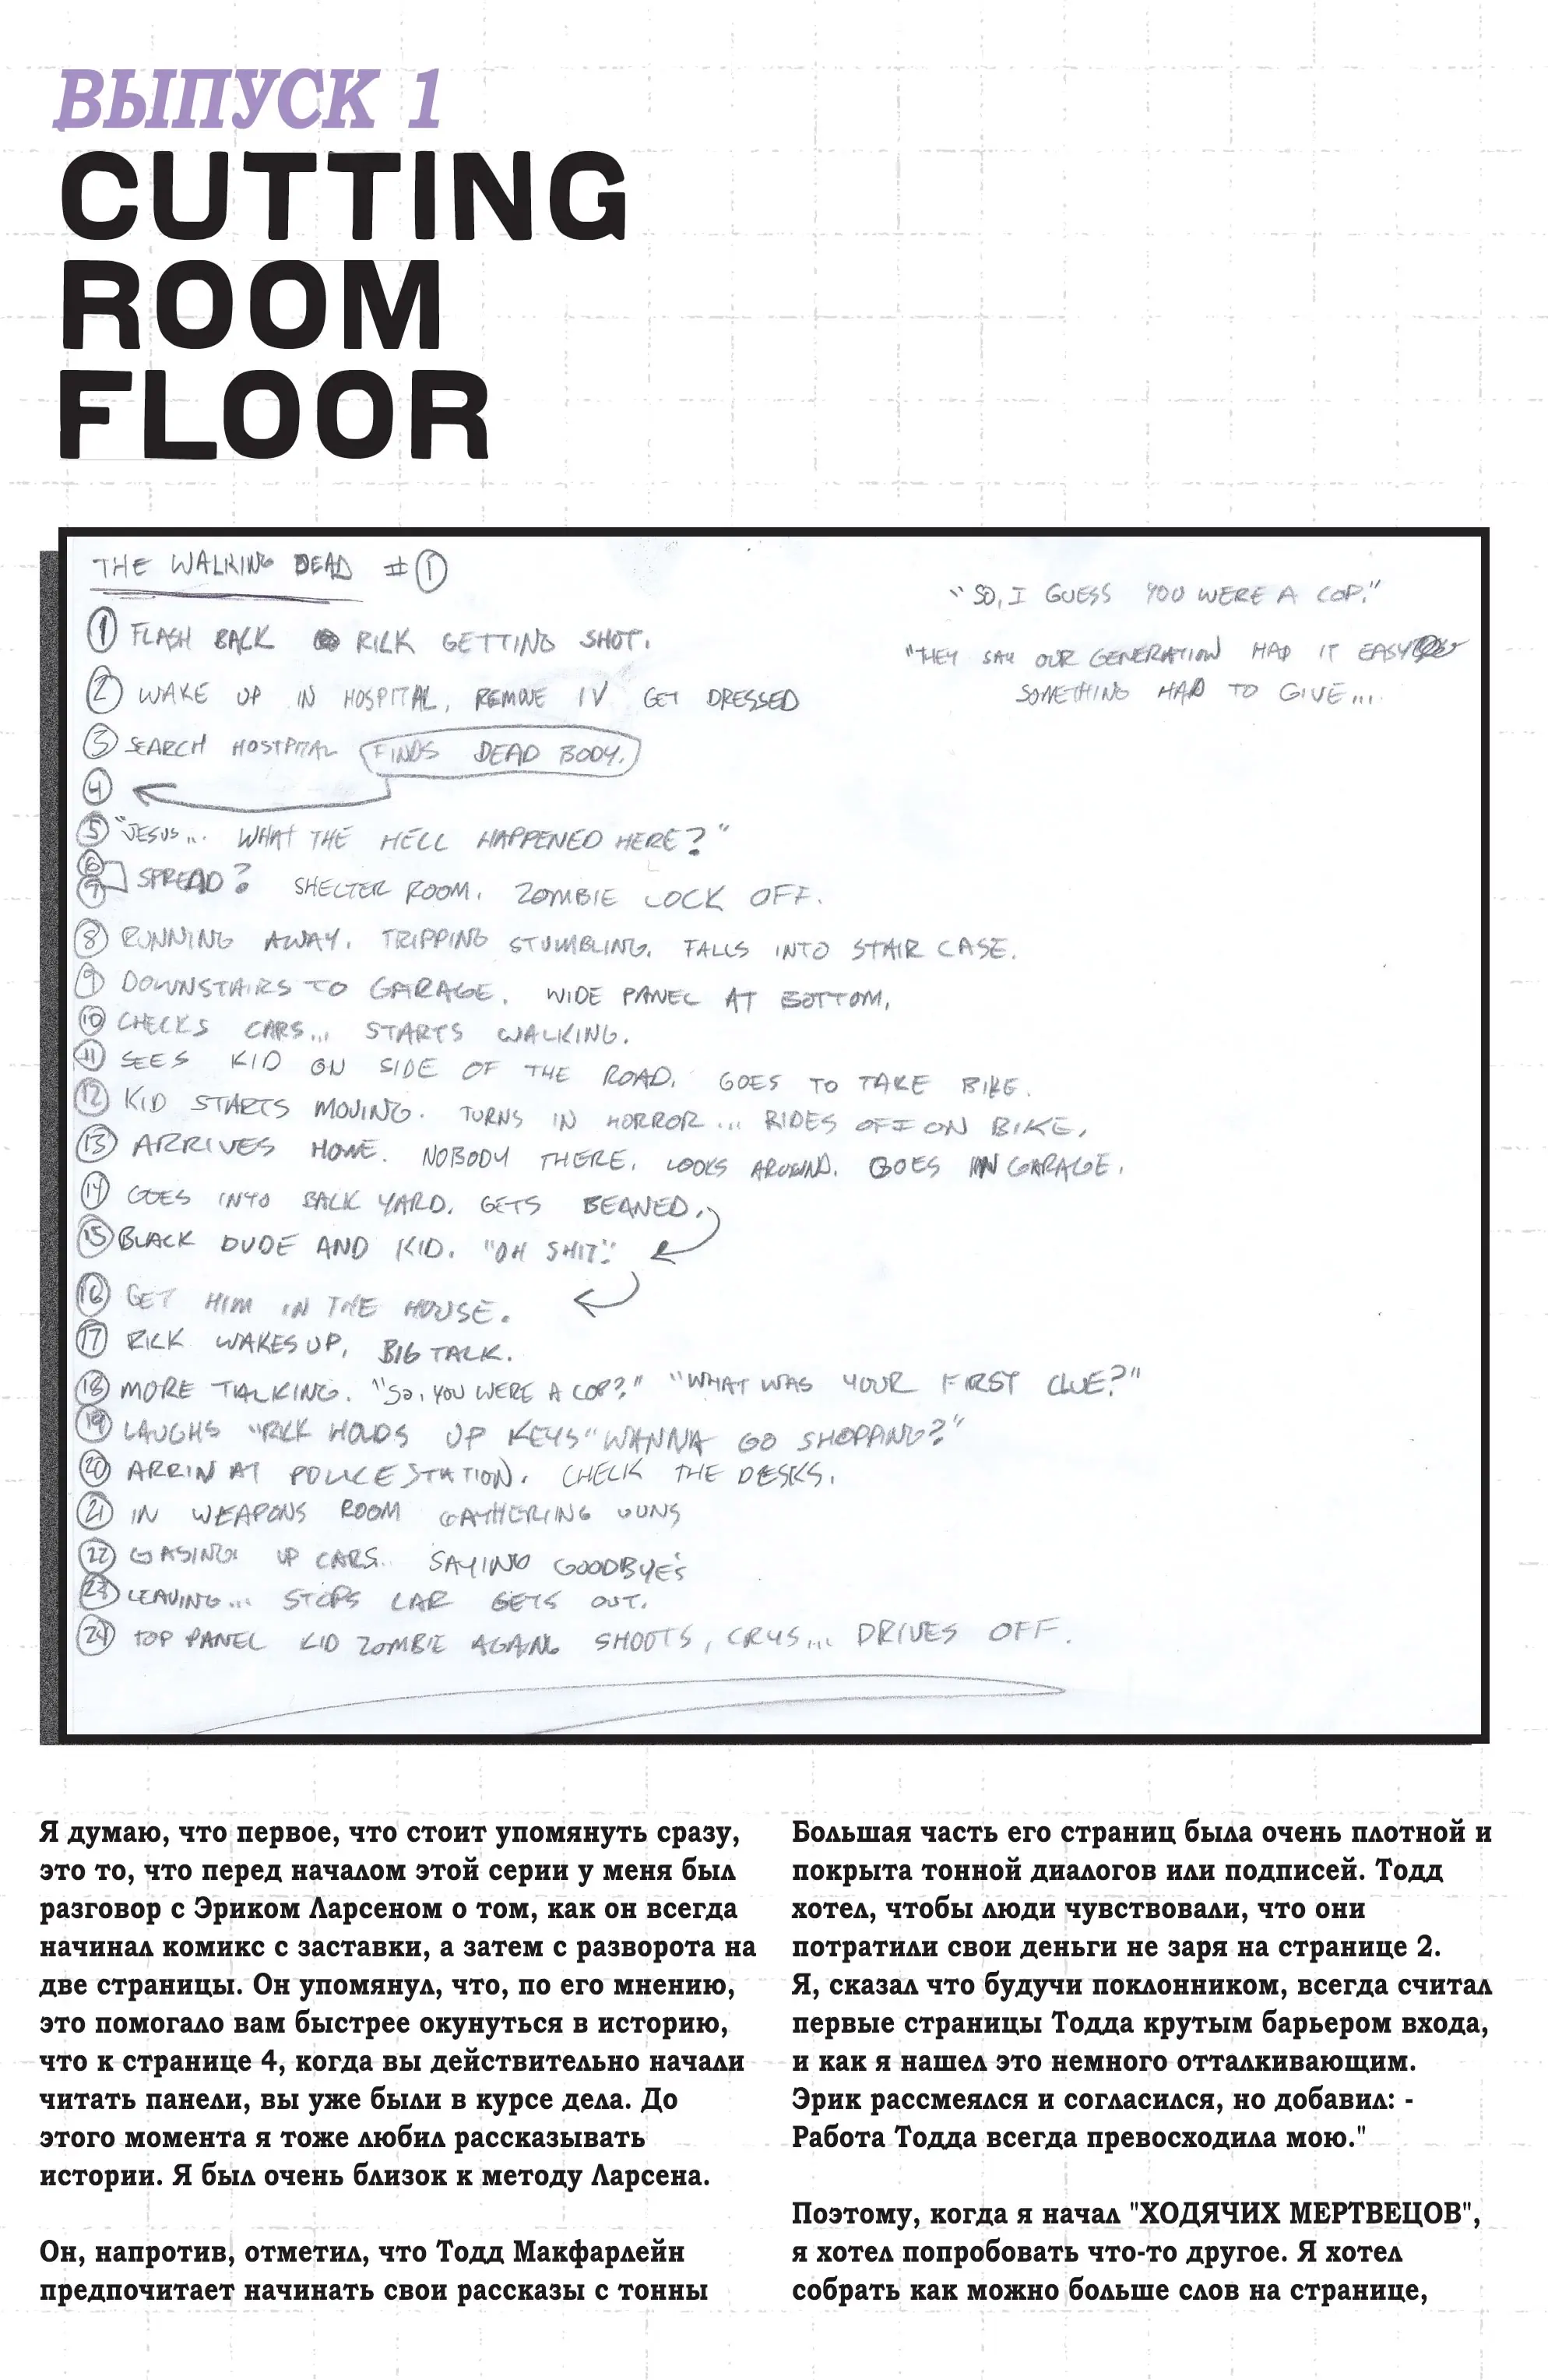 ВЫПУСК 1
CUTTING
ROOM
FLOOR
THE WALKING DEAD #1
"SO, I GUESS YOU WERE A COP."
"THEY SAY OUR GENERATION HAD IT EASY
SOMETHING HAD TO GIVE...
1 FLASH BACK RICK GETTING SHOT.
2 WAKE UP IN HOSPITAL, REMOVE IV GET DRESSED
3 SEARCH HOSTPITAL FINDS DEAD BODY.
4
5 "JESUS... WHAT THE HELL HAPPENED HERE?"
6
7 SPREAD? SHELTER ROOM. ZOMBIE LOCK OFF.
8 RUNNING AWAY. TRIPPING STUMBLING. FALLS INTO STAIR CASE.
9 DOWNSTAIRS TO GARAGE. WIDE PANEL AT BOTTOM.
10 CHECKS CARS... STARTS WALKING.
11 SEES KID ON SIDE OF THE ROAD. GOES TO TAKE BIKE.
12 KID STARTS MOVING. TURNS IN HORROR... RIDES OFF ON BIKE.
13 ARRIVES HOME. NOBODY THERE. LOOKS AROUND. GOES IN GARAGE.
14 GOES INTO BACK YARD. GETS BEANED.
15 BLACK DUDE AND KID. "OH SHIT."
16 GET HIM IN THE HOUSE.
17 RICK WAKES UP, BIG TALK.
18 MORE TALKING. "SO, YOU WERE A COP?" "WHAT WAS YOUR FIRST CLUE?"
19 LAUGHS "RICK HOLDS UP KEYS "WANNA GO SHOPPING?"
20 ARRIN AT POLICE STATION. CHECK THE DESKS.
21 IN WEAPONS ROOM GATHERING GUNS
22 GASING UP CARS.. SAYING GOODBYE'S
23 LEAVING... STOPS CAR GETS OUT.
24 TOP PANEL KID ZOMBIE AGAING SHOOTS, CRYS... DRIVES OFF.
Я думаю, что первое, что стоит упомянуть сразу,
это то, что перед началом этой серии у меня был
разговор с Эриком Ларсеном о том, как он всегда
начинал комикс с заставки, а затем с разворота на
две страницы. Он упомянул, что, по его мнению,
это помогало вам быстрее окунуться в историю,
что к странице 4, когда вы действительно начали
читать панели, вы уже были в курсе дела. До
этого момента я тоже любил рассказывать
истории. Я был очень близок к методу Ларсена.
Он, напротив, отметил, что Тодд Макфарлейн
предпочитает начинать свои рассказы с тонны
Большая часть его страниц была очень плотной и
покрыта тонной диалогов или подписей. Тодд
хотел, чтобы люди чувствовали, что они
потратили свои деньги не заря на странице 2.
Я, сказал что будучи поклонником, всегда считал
первые страницы Тодда крутым барьером входа,
и как я нашел это немного отталкивающим.
Эрик рассмеялся и согласился, но добавил: -
Работа Тодда всегда превосходила мою."
Поэтому, когда я начал "ХОДЯЧИХ МЕРТВЕЦОВ",
я хотел попробовать что-то другое. Я хотел
собрать как можно больше слов на странице,